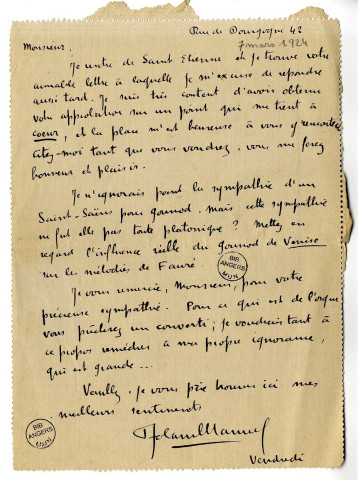 Rue de Bourgogne 42
7 mars 1924
Monsieur,
Je rentre de Saint Etienne et je trouve votre
aimable lettre à laquelle je m'excuse de repondre
aussi tard. Je suis très content d'avoir obtenu
votre approbation sur un point qui me tient à
coeur, et la place m'est heureuse à vous y rencontrer.
Citez-moi tant que vous voudrez, vous me ferez
honneur et plaisir.
Je n'ignorais point la sympathie d'un
Saint-Saëns pour Gounod. Mais cette sympathie
ne fut elle pas toute platonique ? Mettez en
regard l'influence réelle du Gounod de Venise
sur les mélodies de Fauré.
BIB
ANGERS
MUN
Je vous remercie, Monsieur, pour votre
précieuse sympathie. Pour ce qui est de l'orgue
vous prêcherez un converti ; je voudrais tant à
ce propos remédier à ma propre ignorance,
qui est grande...
Veuillez, je vous prie trouver ici mes
meilleurs sentiments
BIB
ANGERS
MUN
Roland Manuel
Vendredi